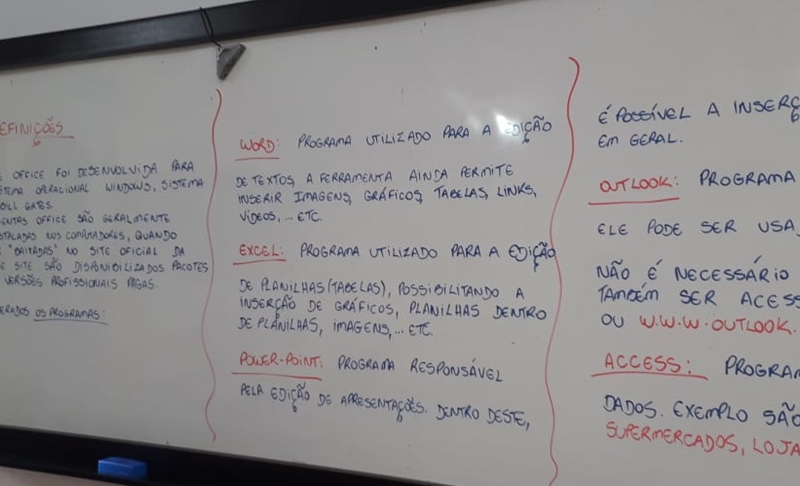 EFINIÇÕES
OFFICE FOI DESENVOLVIDA PARA
TEMA OPERACIONAL WINDOWS, SISTEMA
BILL GATES.
ENTAS OFFICE SÃO GERALMENTE
STALADAS NOS COMPUTADORES, QUANDO
"BAIXADAS" NO SITE OFICIAL DA
E SITE SÃO DISPONIBILIZADOS PACOTES
VERSÕES PROFISSIONAIS PAGAS.
ERADOS OS PROGRAMAS:
WORD: PROGRAMA UTILIZADO PARA A EDIÇÃO
DE TEXTOS, A FERRAMENTA AINDA PERMITE
INSERIR IMAGENS, GRÁFICOS, TABELAS, LINKS,
VÍDEOS,... ETC.
EXCEL: PROGRAMA UTILIZADO PARA A EDIÇÃO
DE PLANILHAS (TABELAS), POSSIBILITANDO A
INSERÇÃO DE GRÁFICOS, PLANILHAS DENTRO
DE PLANILHAS, IMAGENS,... ETC.
POWER-POINT: PROGRAMA RESPONSÁVEL
PELA EDIÇÃO DE APRESENTAÇÕES. DENTRO DESTE,
É POSSÍVEL A INSERÇ
EM GERAL.
OUTLOOK: PROGRAMA
ELE PODE SER USA
NÃO É NECESSÁRIO
TAMBÉM SER ACESS
OU W.W.W.OUTLOOK.
ACCESS: PROGRAM
DADOS. EXEMPLO SÃO
SUPERMERCADOS, LOJA